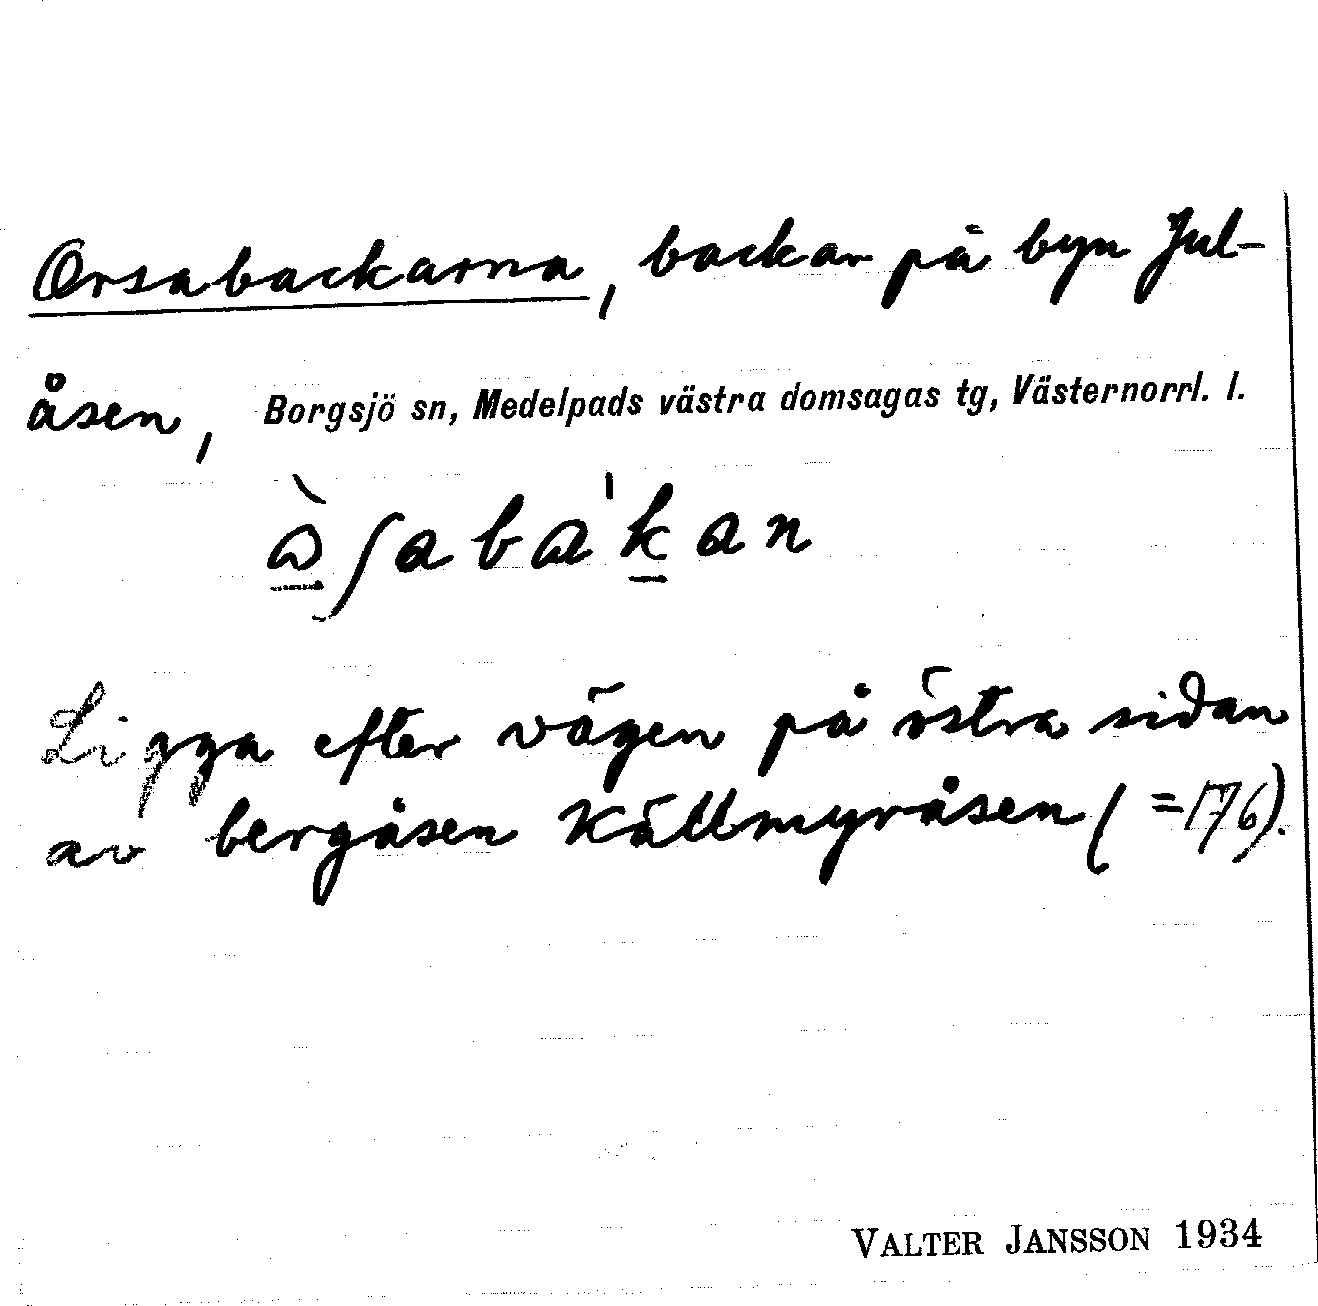 Orsabackarna, backar på byn Jul-
åsen, Borgsjö sn, Medelpads västra domsagas tg, Västernorrl. l.
Ligga efter vägen på östra sidan
av bergåsen Källmyråsen (=176).
VALTER JANSSON 1934